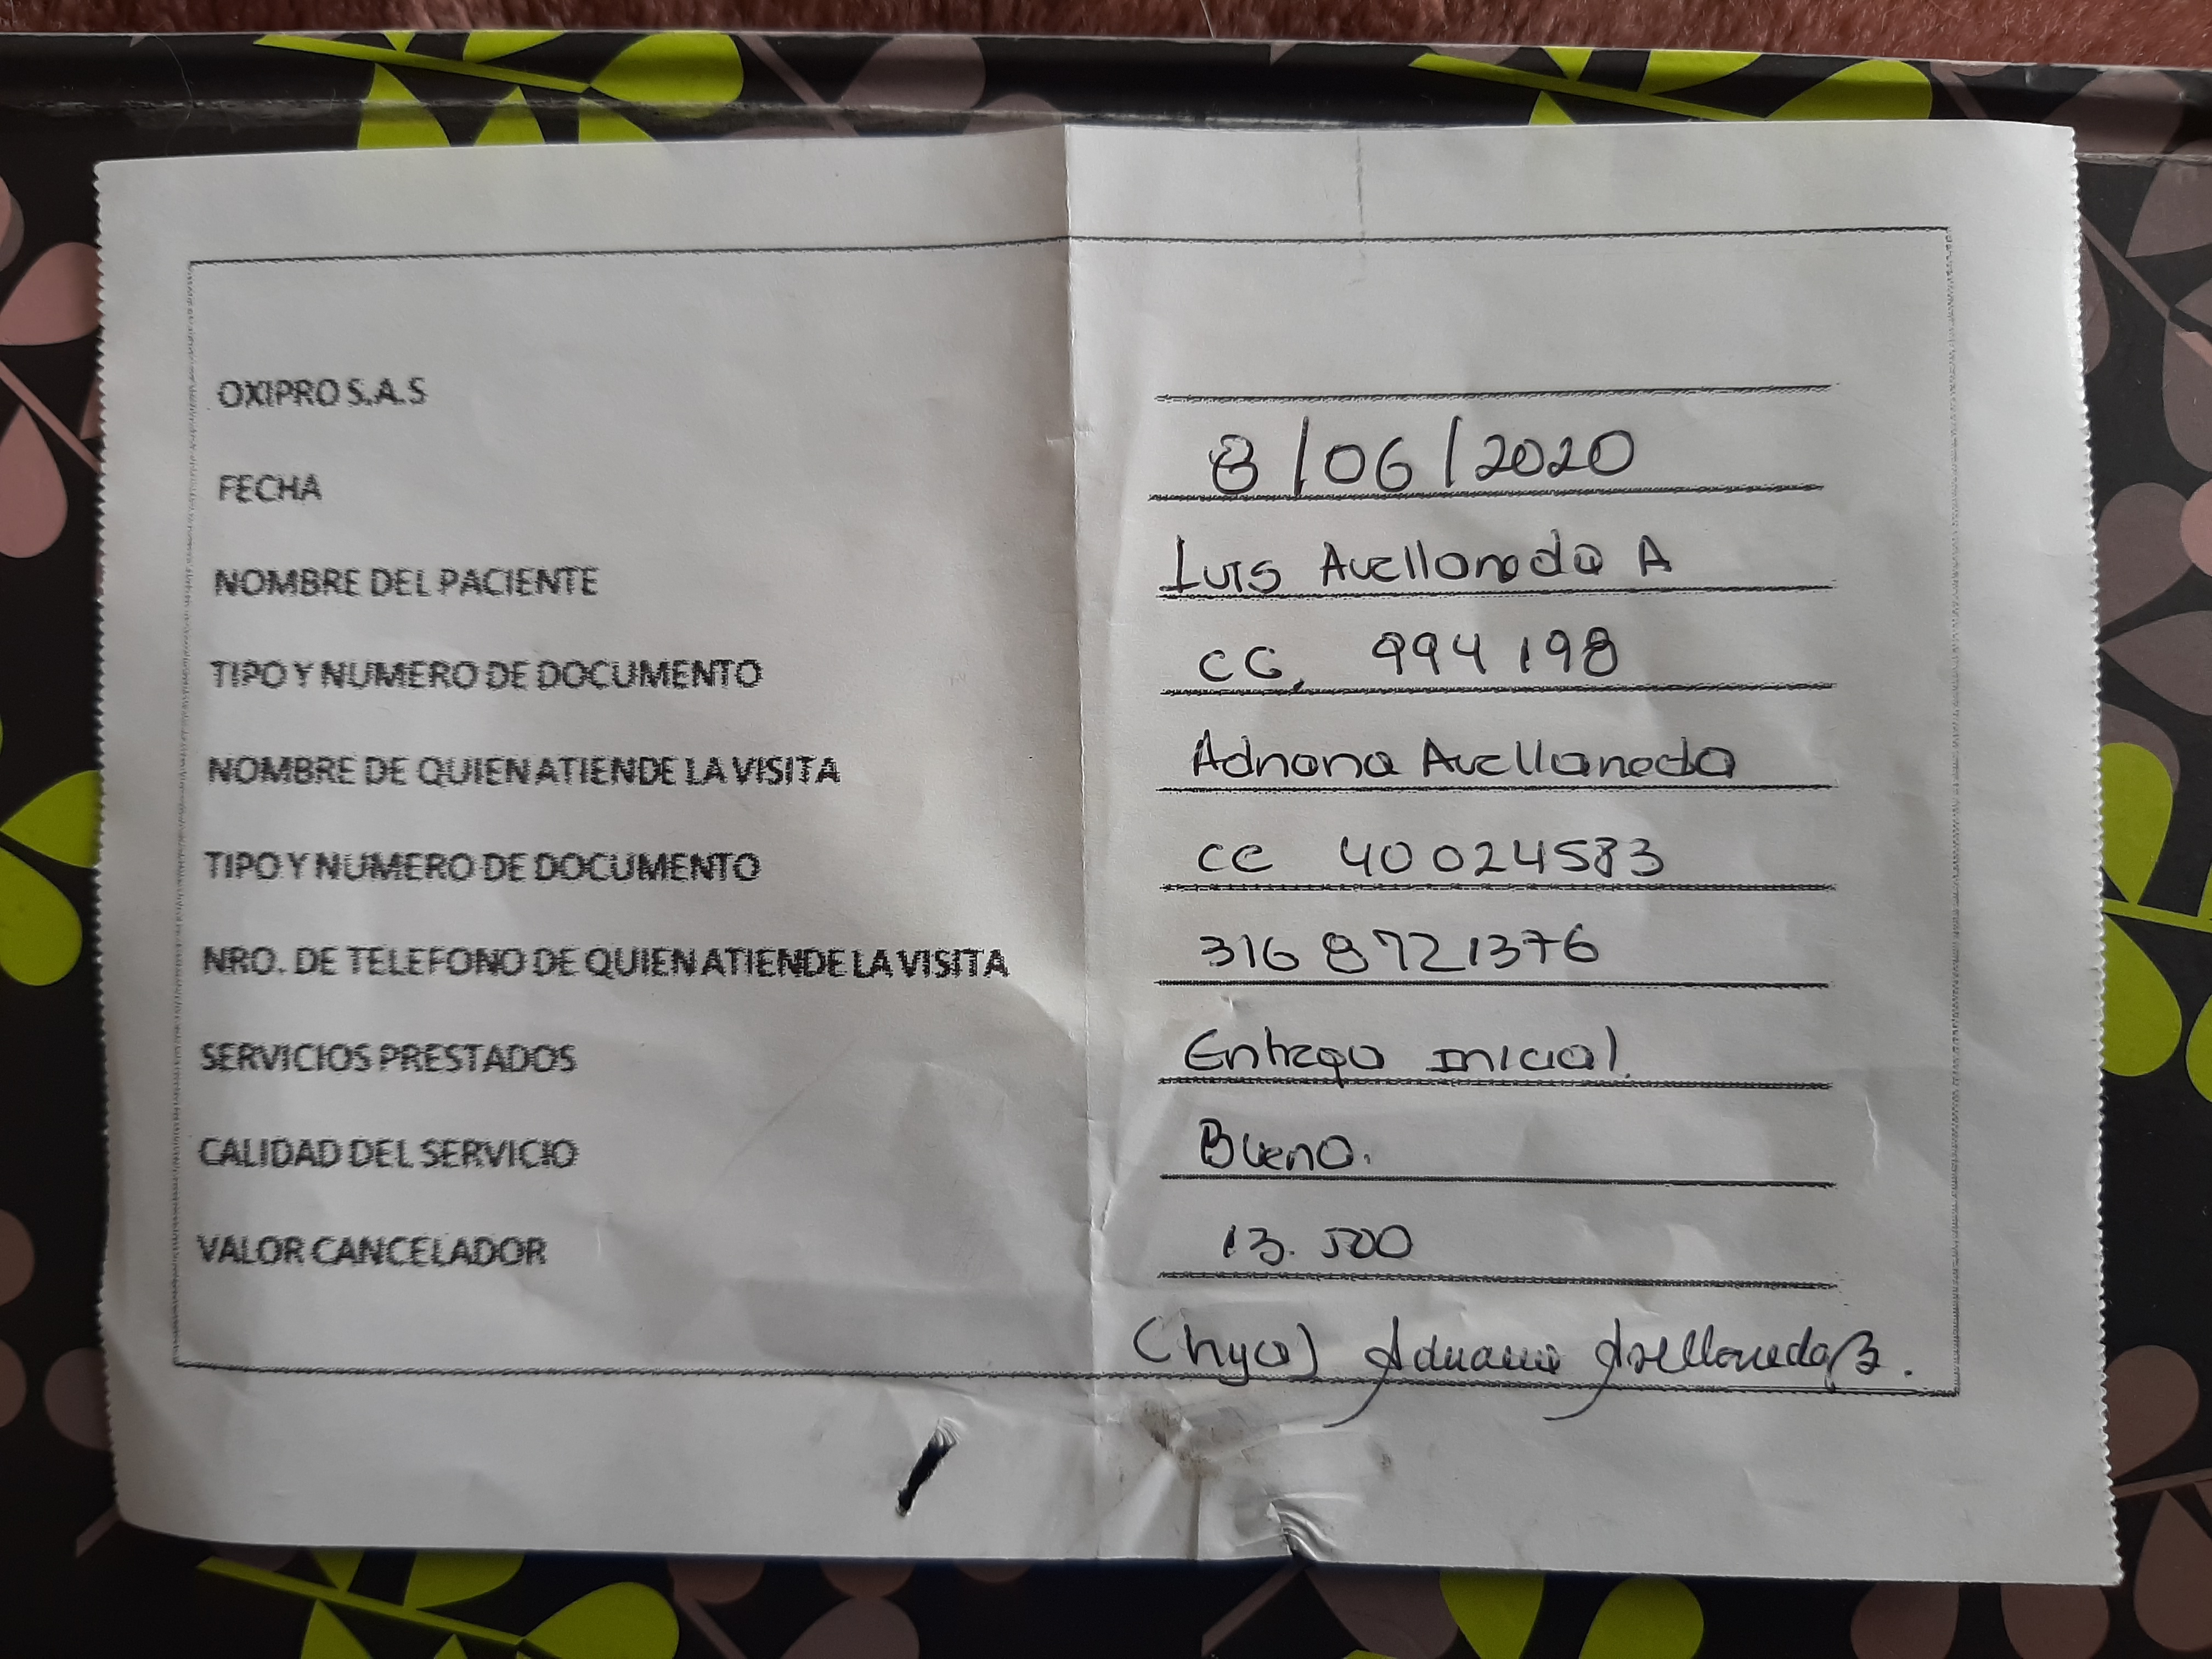 OXIPRO S.A.S
FECHA 8/06/2020
NOMBRE DEL PACIENTE Luis Avellaneda A
TIPO Y NUMERO DE DOCUMENTO CC. 994198
NOMBRE DE QUIEN ATIENDE LA VISITA Adriana Avellaneda
TIPO Y NUMERO DE DOCUMENTO CC 40024583
NRO. DE TELEFONO DE QUIEN ATIENDE LA VISITA 316 8721376
SERVICIOS PRESTADOS Entrega Inicial.
CALIDAD DEL SERVICIO Bueno.
VALOR CANCELADOR 13.500
(hija) Adriana Avellaneda B.